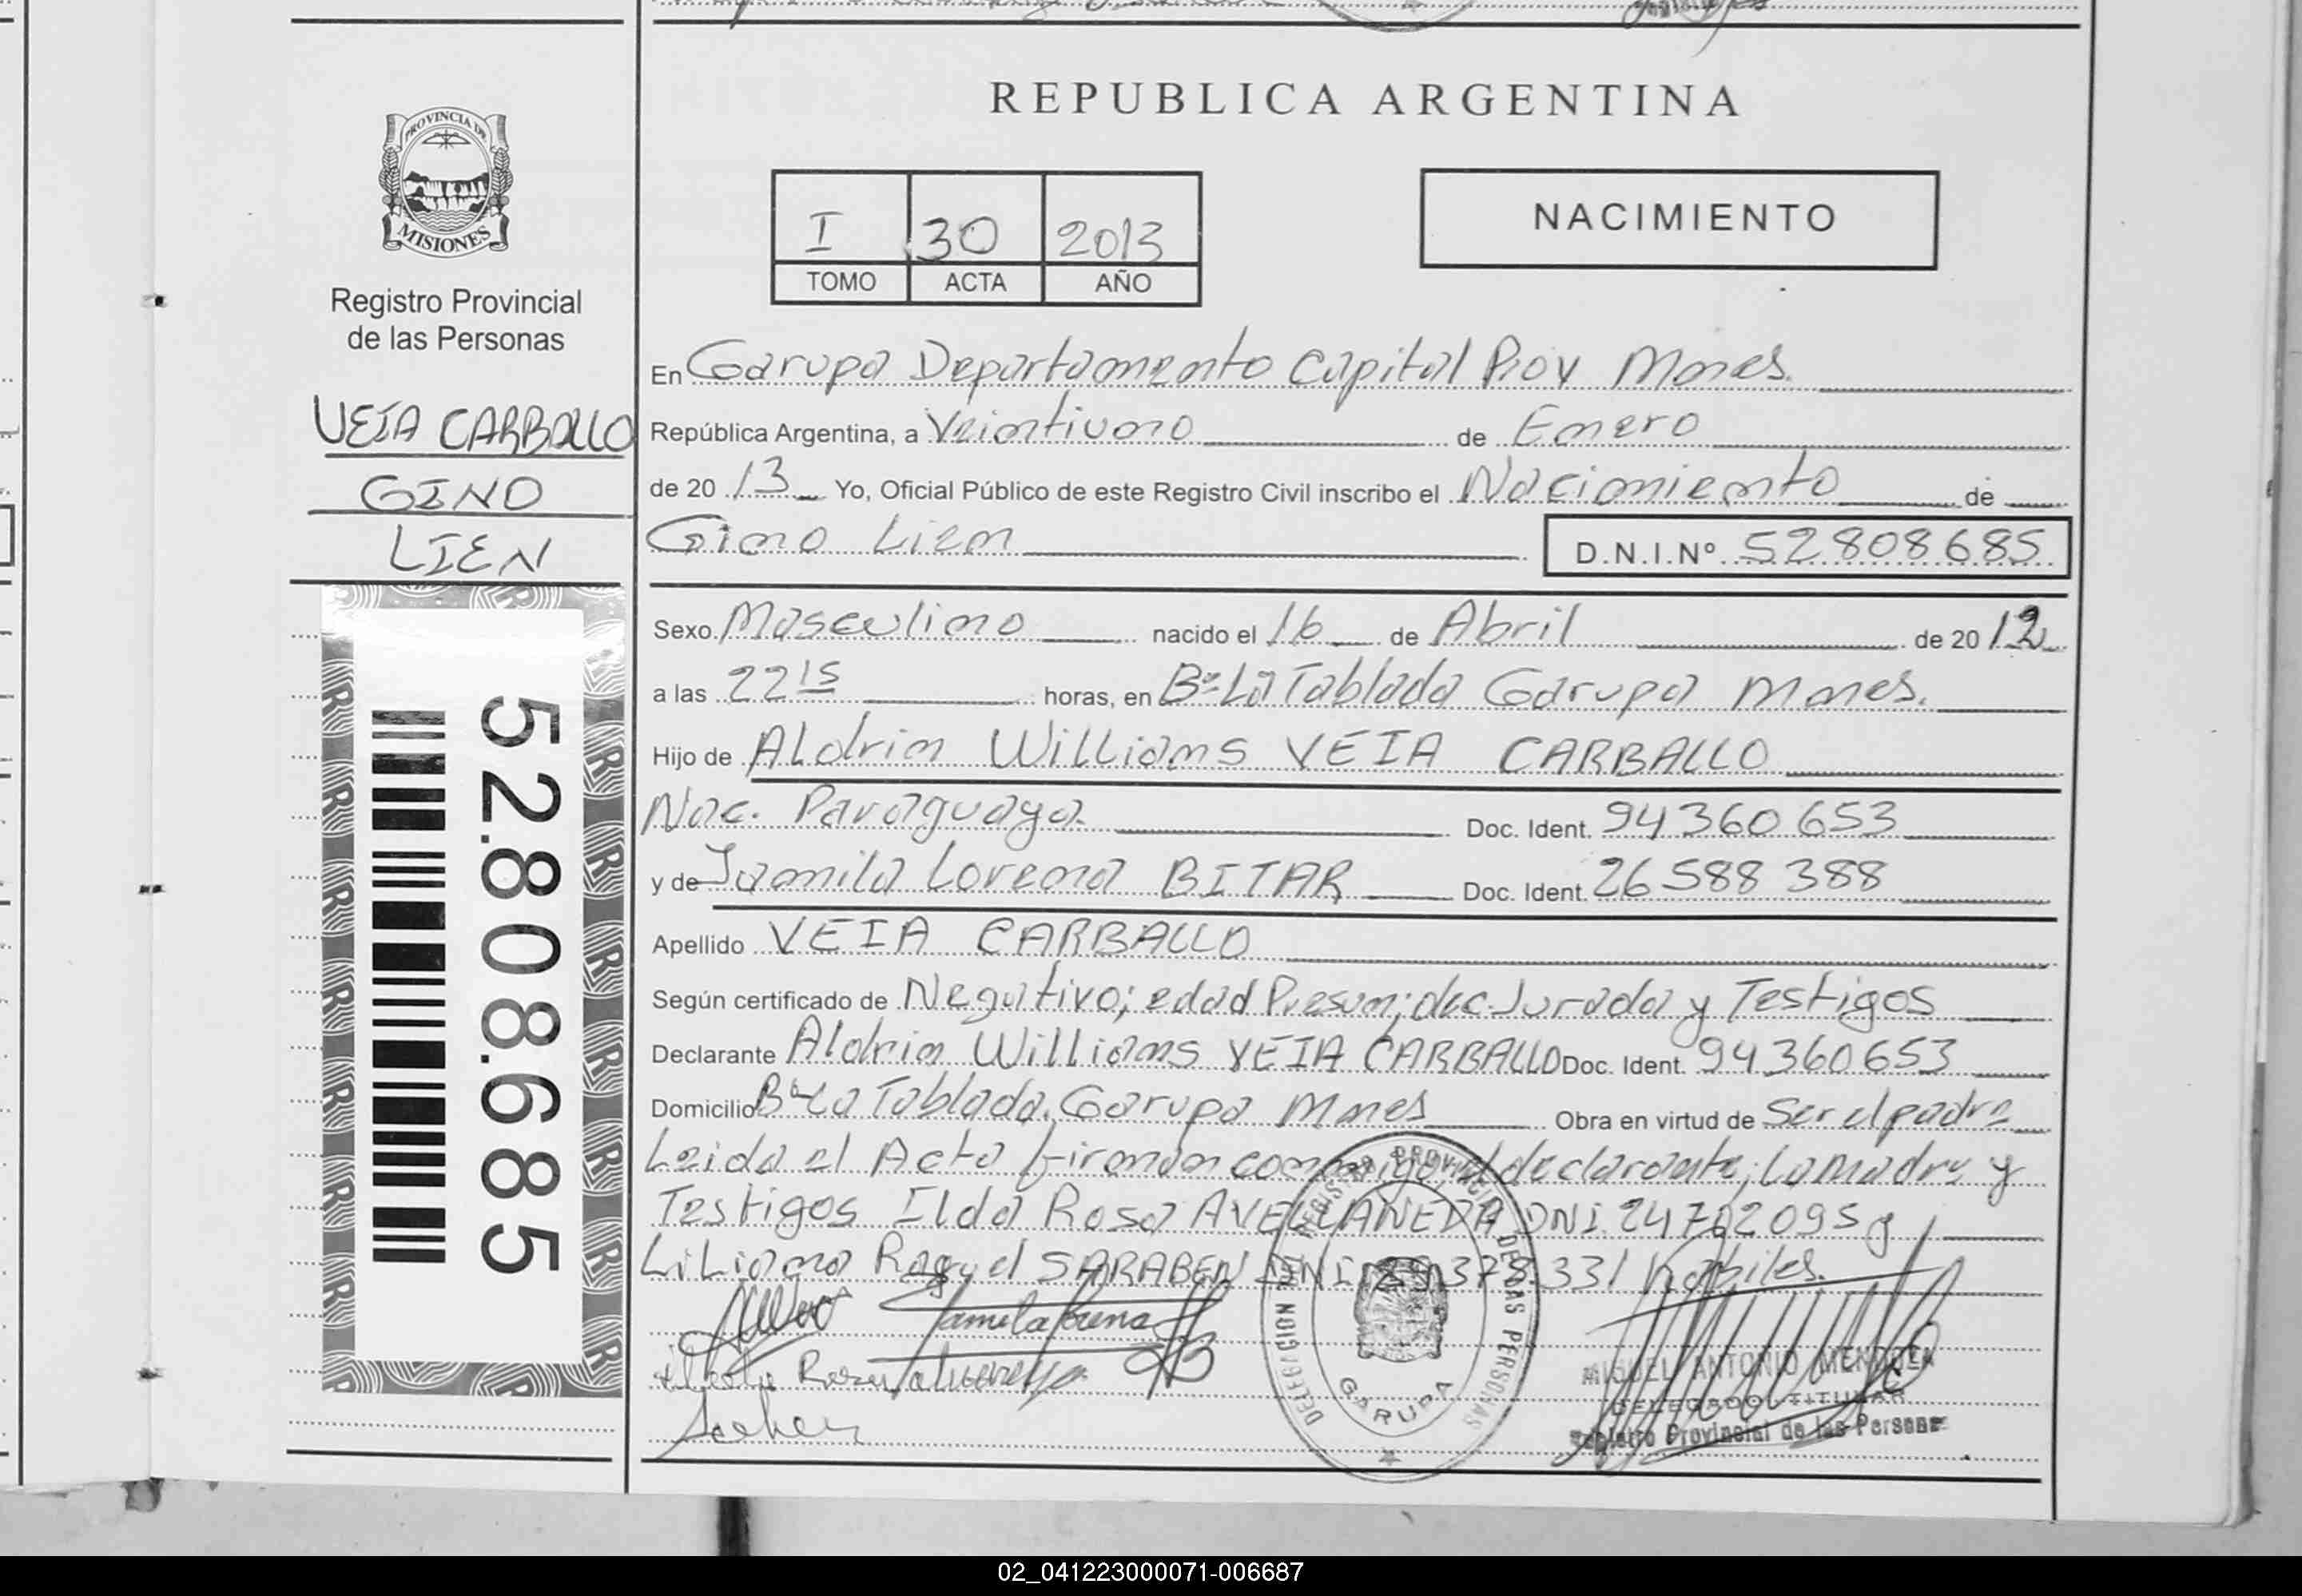 REPUBLICA ARGENTINA
PROVINCIA DE
MISIONES
Registro Provincial
de las Personas
VEIA CARBALLO
GINO
LIEN
52.808.685
I 30 2013
TOMO ACTA AÑO
NACIMIENTO
En Garupa Departamento Capital Prov Mnes.
República Argentina, a Veintiuno de Enero
de 20 13 Yo, Oficial Público de este Registro Civil inscribo el Nacimiento de
Gino Lien D.N.I.Nº 52808685
Sexo Masculino nacido el 16 de Abril de 20 12
a las 22 15 horas, en Bº La Tablada Garupa Mnes.
Hijo de Aldrin Williams VEIA CARBALLO
Nac. Paraguaya Doc. Ident. 94360653
y de Jamila Lorena BITAR Doc. Ident. 26588388
Apellido VEIA CARBALLO
Según certificado de Negativo; edad Presun; dec. Jurada y Testigos
Declarante Aldrin Williams VEIA CARBALLO Doc. Ident. 94360653
Domicilio Bº La Tablada. Garupa Mnes Obra en virtud de Ser el padre
Leida el Acta firman conmigo, el declarante; la Madre y
Testigos Ilda Rosa AVELLANEDA DNI. 24702095 y
Liliana Raquel SARABEN DNI 378.331 habiles.
Jamila Lorena
DELEGACION DEL REGISTRO PROVINCIAL DE LAS PERSONAS
GARUPA
MIGUEL ANTONIO MENDOZA
DELEGADO TITULAR
Registro Provincial de las Personas
02_041223000071-006687